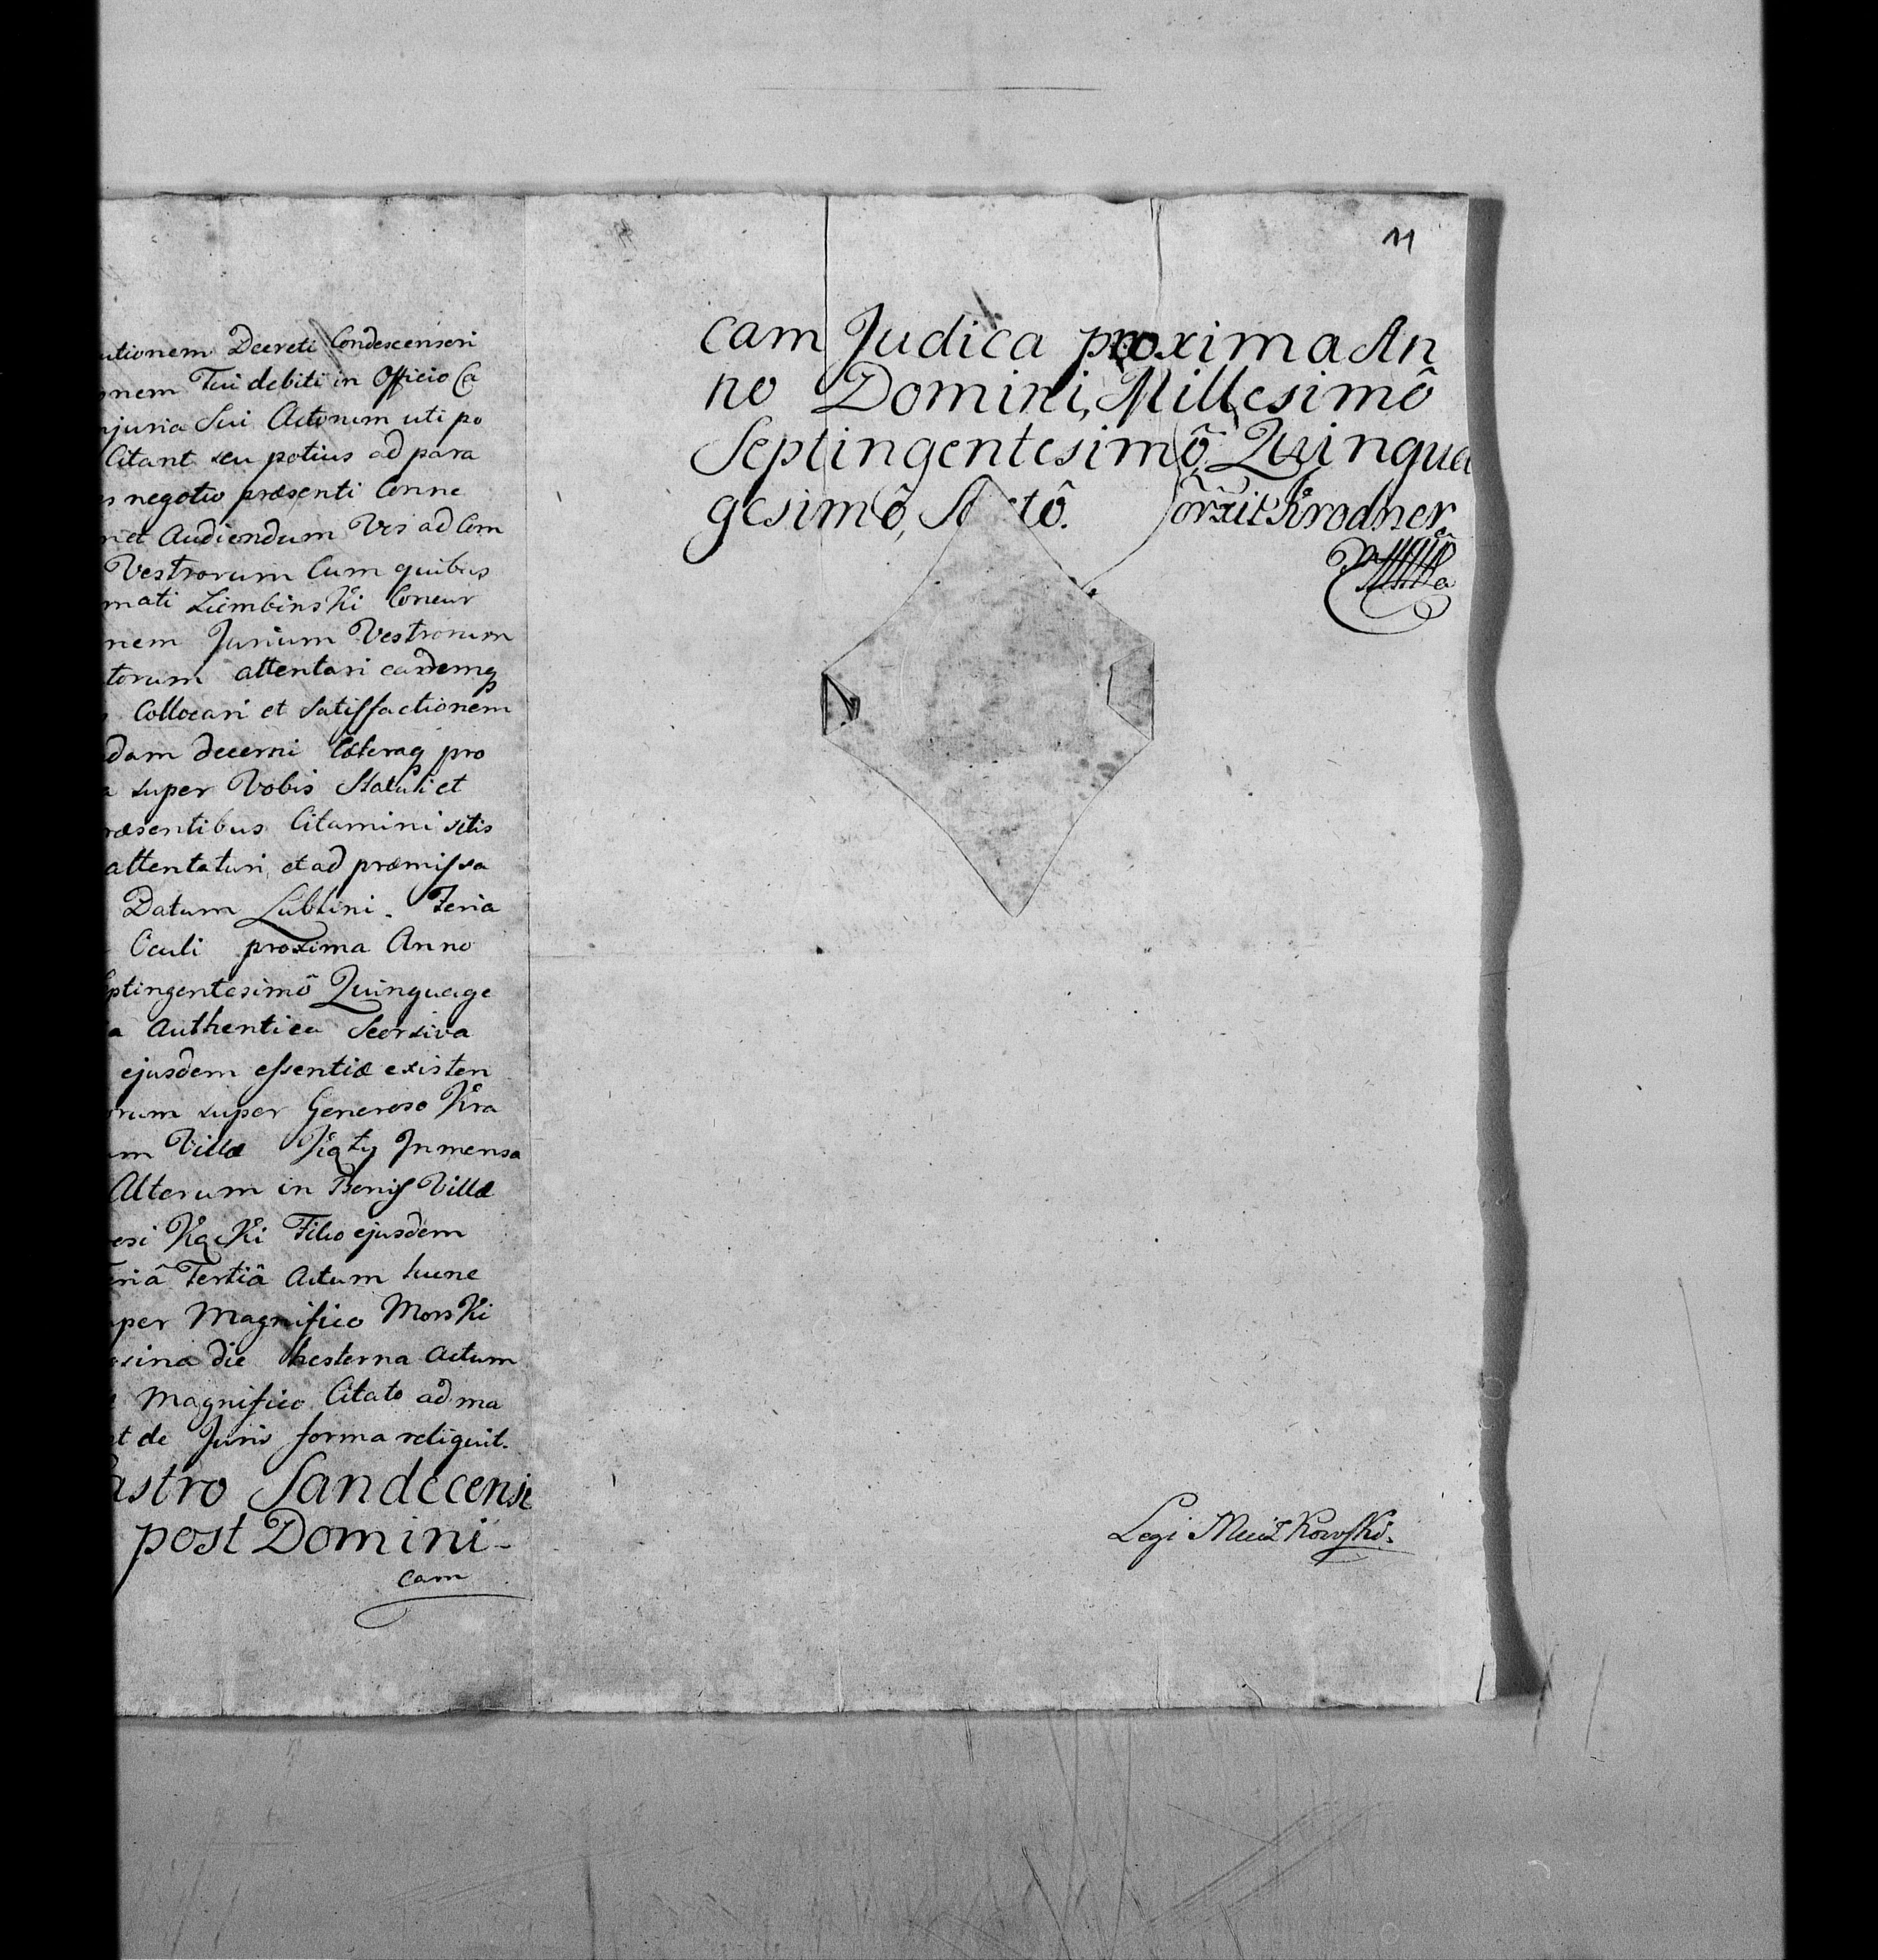 utionem Decreti Condescensori
onem Tui debiti in Officio Ca
njuria Sui Actorum uti po
Citant seu potius ad para
s negotio præsenti Conne
net Audiendum Vos ad Com
Vestrorum Cum quibus
mati Ziembinski Concur
nem Jurium Vestrorum
torum attentari eandemq
Collocari et Satisfactionem
dam decerni Cæteraq pro
a super Vobis Statui et
ræsentibus Citamini sitis
attentaturi, et ad præmissa
Datum Lublini. Feria
Oculi proxima Anno
eptingentesimô Quinquage
a Authentica Seorsiva
ejusdem essentiæ existen
orum super Generoso Kra
um Villæ Kąty In mensa
Alterum in Bonis Villæ
osi Kącki Filio ejusdem
eriâ Tertiâ Actum hunc
uper Magnifico Morski
die hesterna Actum
Magnifico Citato ad ma
t de Juris forma reliquit.
astro Sandecensi
post Domini-
cam
11
cam Judica proxima An
no Domini, Millesimô
Septingentesimô, Quinqua
gesimô, S tô. Krodner
Legi